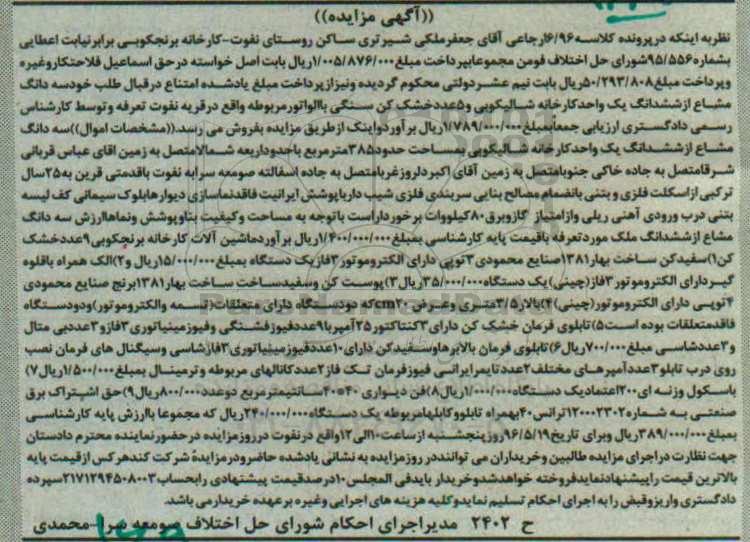 ((آگهی مزایده))
نظربه اینکه درپرونده کلاسه۶/۹۶ارجاعی آقای جعفرملکی شیرتری ساکن روستای نفوت-کارخانه برنجکوبی برابرنیابت اعطایی
بشماره۹۵/۵۵۶شورای حل اختلاف فومن مجموعابپرداخت مبلغ۱/۰۰۵/۸۷۶/۰۰۰ریال بابت اصل خواسته درحق اسماعیل فلاحتکاروغیره
وپرداخت مبلغ۵۰/۲۹۳/۸۰۸ریال بابت نیم عشردولتی محکوم گردیده ونیزازپرداخت مبلغ یادشده امتناع درقبال طلب خودسه دانگ
مشاع ازششدانگ یک واحدکارخانه شالیکوبی و۵عددخشک کن سنگی باالواتورمربوطه واقع درقریه نفوت تعرفه وتوسط کارشناس
رسمی دادگستری ارزیابی جمعابمبلغ۱/۷۸۹/۰۰۰/۰۰۰ریال برآوردواینک ازطریق مزایده بفروش می رسد.((مشخصات اموال))سه دانگ
مشاع ازششدانگ یک واحدکارخانه شالیکوبی بمساحت حدود۳۸۵مترمربع باحدوداربعه شمالامتصل به زمین اقای عباس قربانی
شرقامتصل به جاده خاکی جنوبامتصل به زمین آقای اکبردلروزغربامتصل به جاده اسفالته صومعه سرابه نفوت باقدمتی قرین به۲۵سال
ترکیبی ازاسکلت فلزی و بتنی بانضمام مصالح بنایی سربندی فلزی شیب دارباپوشش ایرانیت فاقدنماسازی دیوارهابلوک سیمانی کف لیسه
بتنی درب ورودی آهنی ریلی وازامتیاز گازوبرق۸۰کیلووات برخورداراست باتوجه به مساحت وکیفیت بناوپوشش ونماهاارزش سه دانگ
مشاع ازششدانگ ملک موردتعرفه باقیمت پایه کارشناسی بمبلغ۱/۴۰۰/۰۰۰/۰۰۰ریال برآوردماشین آلات کارخانه برنجکوبی۹عددخشک
کن۱)سفیدکن ساخت بهار۱۳۸۱صنایع محمودی۳توپی دارای الکتروموتور۳فازیک دستگاه بمبلغ۱۵/۰۰۰/۰۰۰ریال و۲)الک همراه باقلوه
گیردارای الکتروموتور۳فاز(چینی)یک دستگاه۳۵/۰۰۰/۰۰۰ریال۳)پوست کن وسفیدساخت ساخت بهار۱۳۸۱برنج صنایع محمودی
۴توپی دارای الکتروموتور(چینی)۴)بالابر۳/۵متری وعرض ۲۰cmکه دودستگاه دارای متعلقات(تسمه والکتروموتور)ودودستگاه
فاقدمتعلقات بوده است۵)تابلوی فرمان خشک کن دارای۳کنتاکتور۲۵آمپربا۹عددفیوزفشنگی وفیوزمینیاتوری۳فازو۳عددبی متال
و۳عددشاسی مبلغ۷۰۰/۰۰۰ریال۶)تابلوی فرمان بالابرهاوسفیدکن دارای۱۰عددفیوزمینیاتوری۳فازشاسی وسیگنال های فرمان نصب
روی درب تابلو۳عددآمپرهای مختلف۲عددتایمرایرانی فیوزفرمان تک فاز۲عددکانالهای مربوطه وترمینال بمبلغ۱/۵۰۰/۰۰۰ریال۷)
باسکول وزنه ای۲۰۰اعتمادیک دستگاه۱/۰۰۰/۰۰۰ریال۸)فن دیواری ۴۰*۴۰سانتیمترمربع دوعدد۸۰۰/۰۰۰ریال۹)حق اشتراک برق
صنعتی به شماره۱۲۰۰۰۲۳۰۲ترانس۴۰بهمراه تابلووکابلهامربوطه یک دستگاه۲۴۰/۰۰۰/۰۰۰ریال که مجموعا باارزش پایه کارشناسی
بمبلغ۳۸۹/۰۰۰/۰۰۰ریال وبرای تاریخ۹۶/۵/۱۹روزپنجشنبه ازساعت۱۰الی۱۲واقع درنفوت درروزمزایده درحضورنماینده محترم دادستان
جهت نظارت دراجرای مزایده طالبین وخریداران می تواننددر روزمزایده به نشانی یادشده حاضرودرمزایدهٔ شرکت کندهرکس ازقیمت پایه
بالاترین قیمت راپیشنهادنمایدفروخته خواهدشدوخریدار بایدفی المجلس۱۰درصدقیمت پیشنهادی رابحساب۲۱۷۱۲۹۴۵۰۸۰۰۳سپرده
دادگستری واریزوقبض را به اجرای احکام تسلیم نمایدوکلیه هزینه های اجرایی وغیره برعهده خریدارمی باشد.
ح ۲۴۰۲ مدیراجرای احکام شورای حل اختلاف صومعه سرا-محمدی